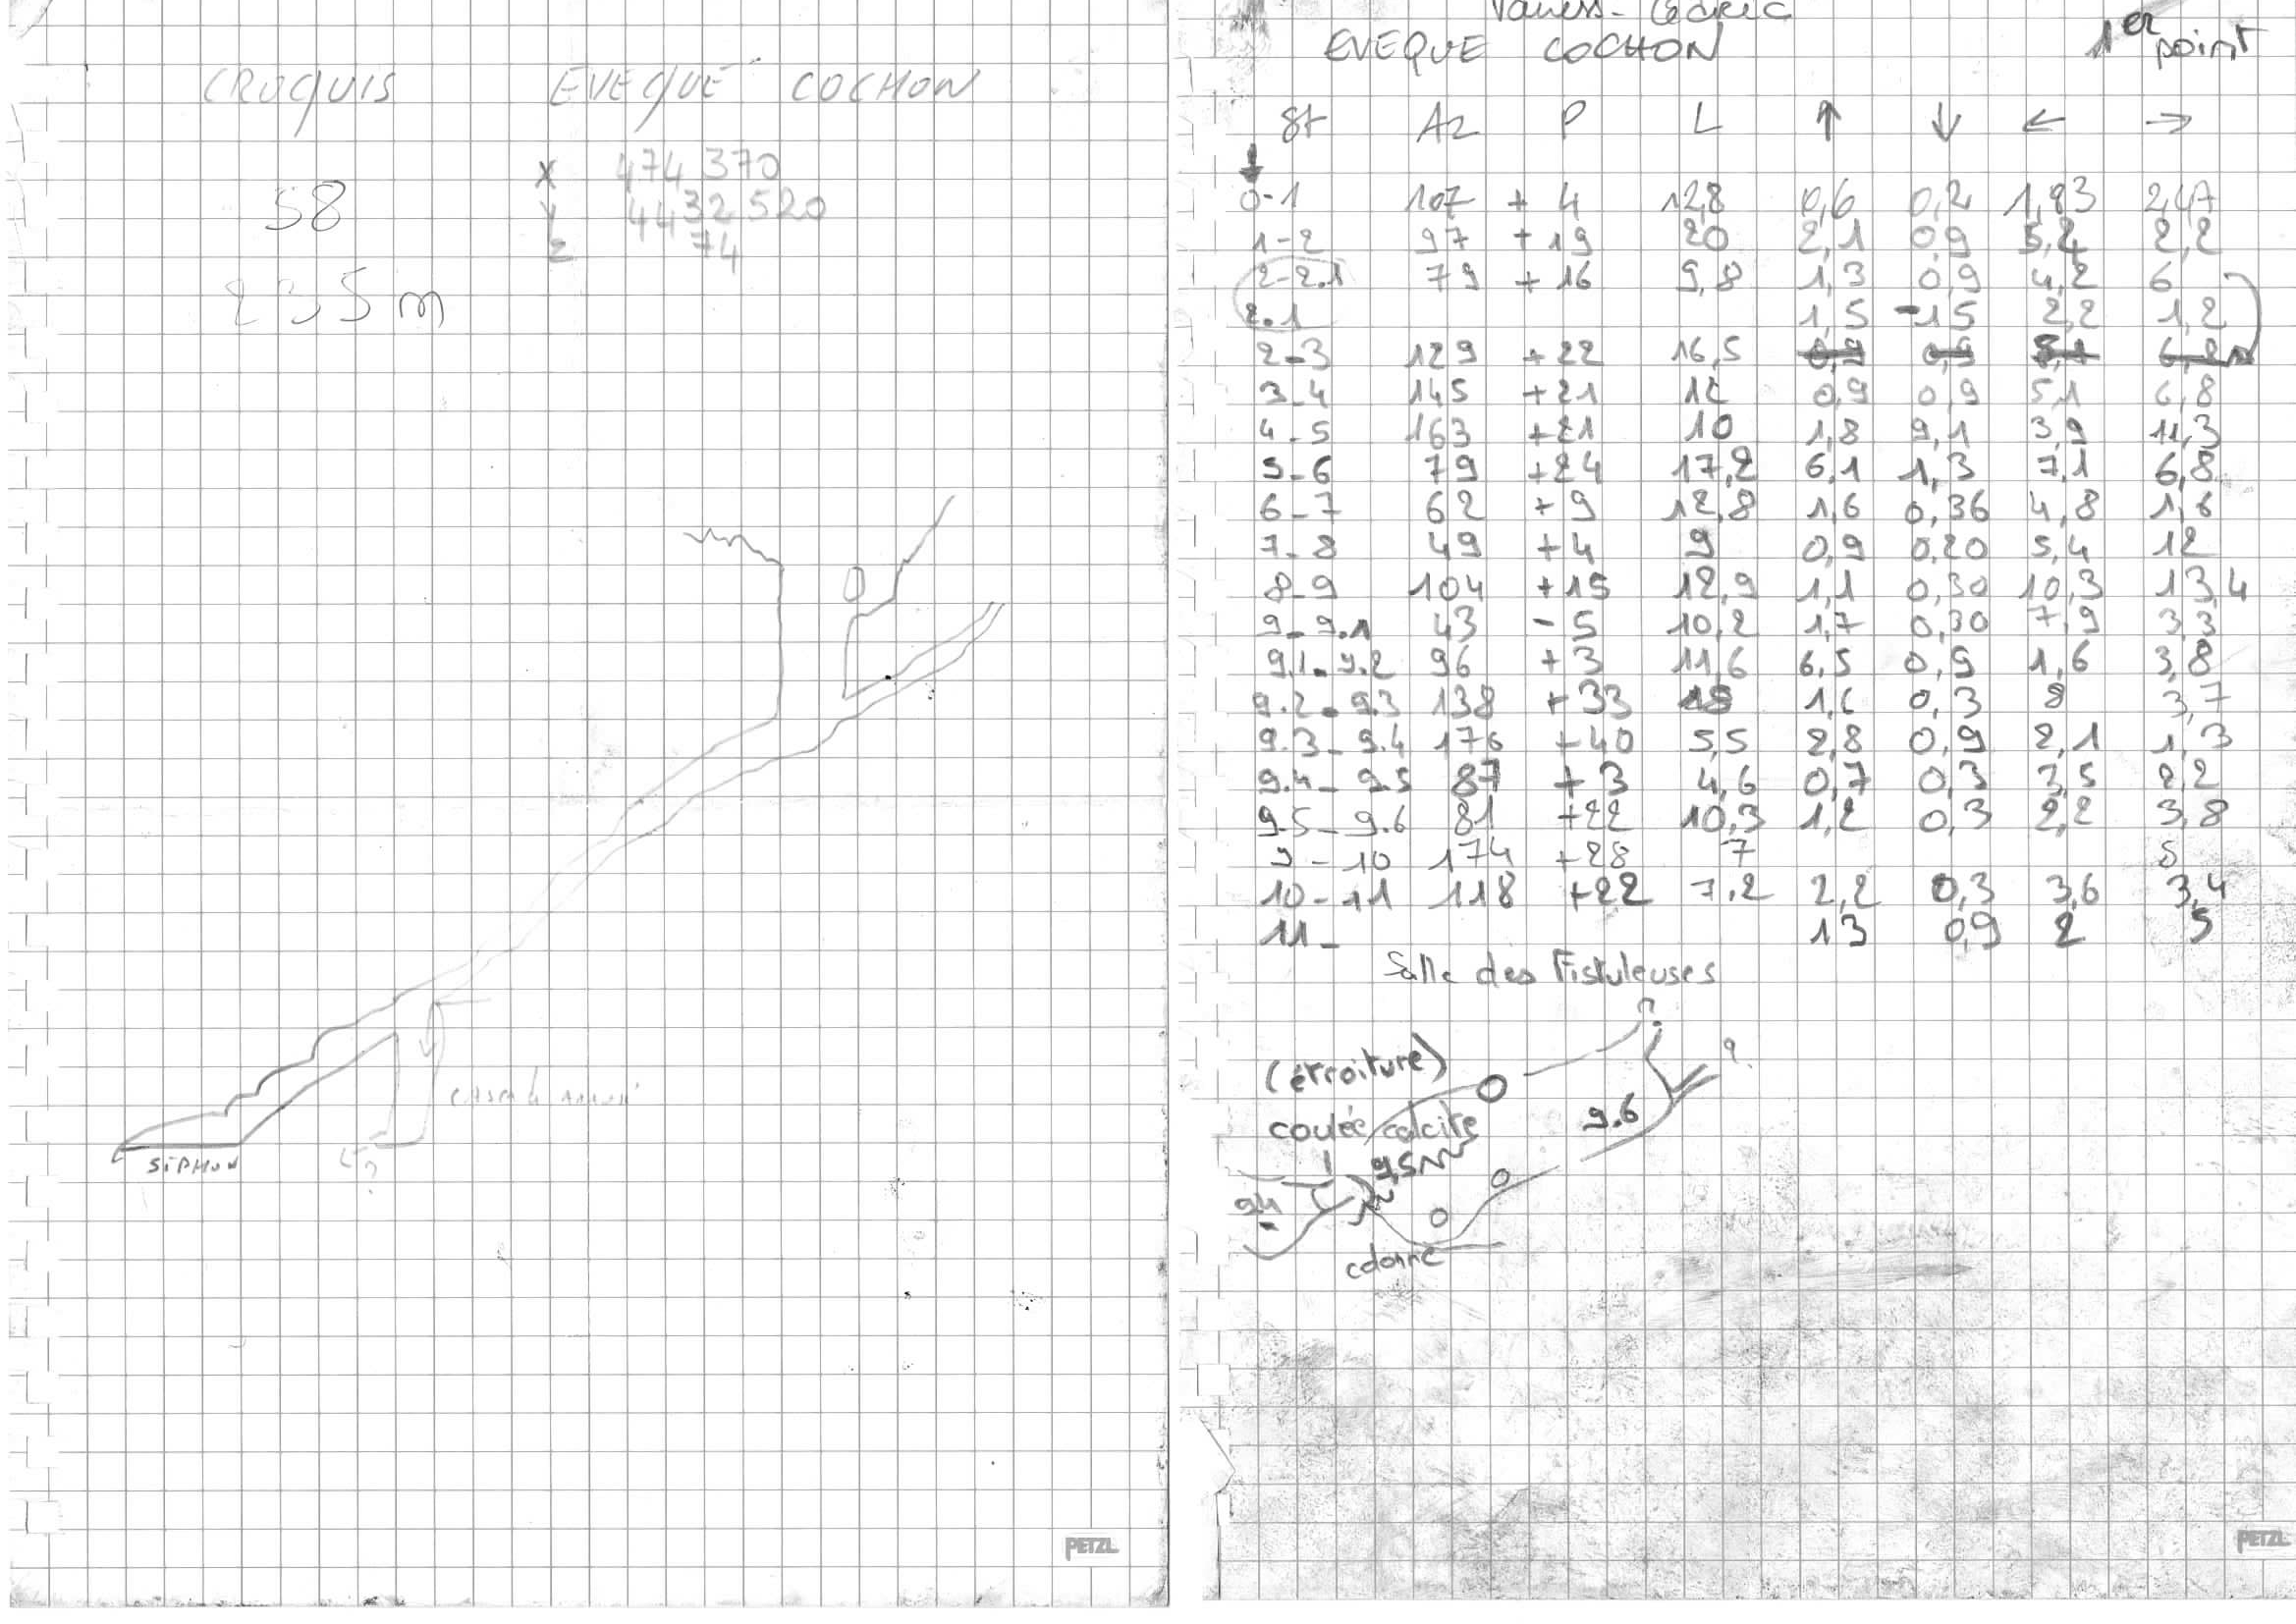 CROQUIS EVEQUE COCHON
58
X 474 370
Y 4432 520
Z 74
235 m
SIPHON
?
PETZL
Cédric
EVEQUE COCHON
1er point
St Az P L ↑ ↓ ← →
0-1 107 +4 12,8 0,6 0,2 1,83 2,47
1-2 97 +19 20 2,1 0,9 5,4 2,2
2-2.1 79 +16 9,8 1,3 0,9 4,2 6
2.1 1,5 -15 2,2 1,2
2-3 129 +22 16,5
3-4 145 +21 12 0,9 0,9 5,1 6,8
4-5 163 +21 10 1,8 9,1 3,9 11,3
5-6 79 +24 17,2 6,1 1,3 7,1 6,8
6-7 62 +9 12,8 1,6 0,36 4,8 1,6
7-8 49 +4 9 0,9 0,20 5,4 12
8-9 104 +15 12,9 1,1 0,30 10,3 13,4
9-9.1 43 -5 10,2 1,7 0,30 7,9 3,3
9.1-9.2 96 +3 11,6 6,5 0,9 1,6 3,8
9.2-9.3 138 +33 18 1,6 0,3 8 3,7
9.3-9.4 176 +40 5,5 2,8 0,9 2,1 1,3
9.4-9.5 87 +3 4,6 0,7 0,3 3,5 2,2
9.5-9.6 81 +22 10,3 1,2 0,3 2,2 3,8
9-10 174 +28 7 5
10-11 118 +22 7,2 2,2 0,3 3,6 3,4
11- 13 0,9 2 5
Salle des Fistuleuses
?
?
(étroiture)
9.6
coulée calcite
9.5
9.4
colonne
PETZL